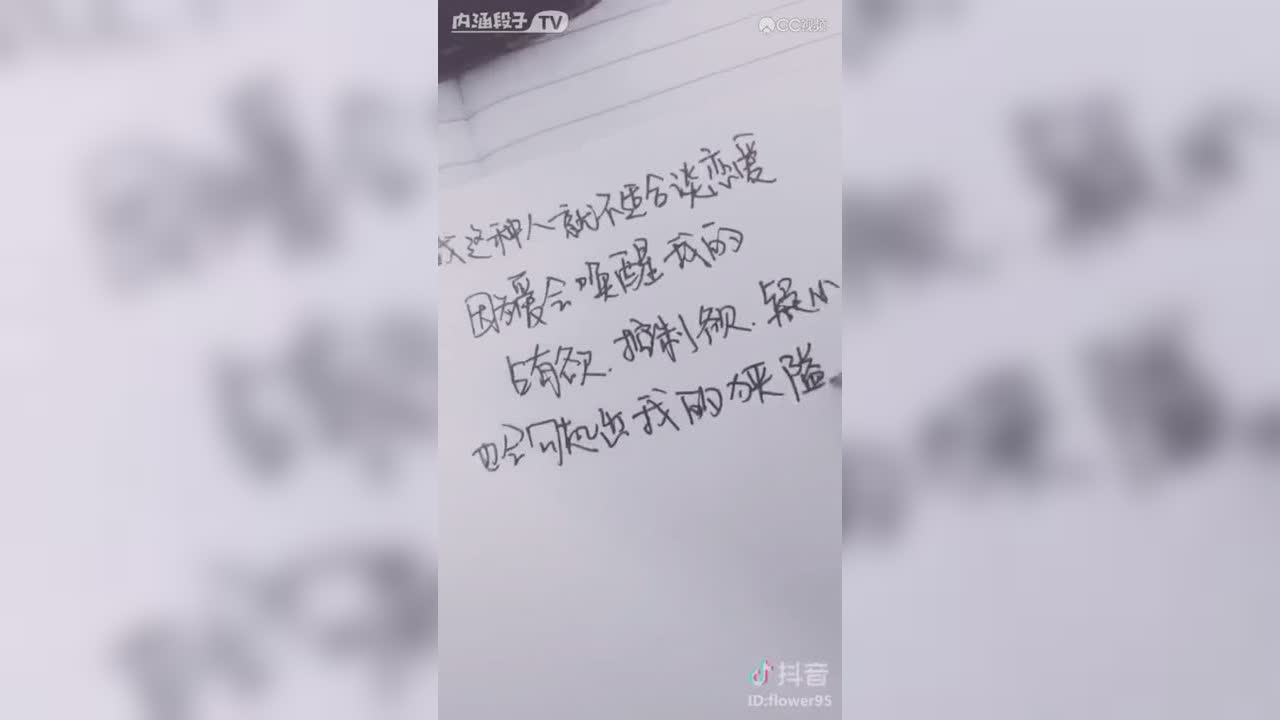 内涵段子TV
CC视频
我这种人就不适合谈恋爱
因为爱会唤醒我的
占有欲.控制欲.疑心
也会勾起出我的狭隘
抖音
ID:flower95